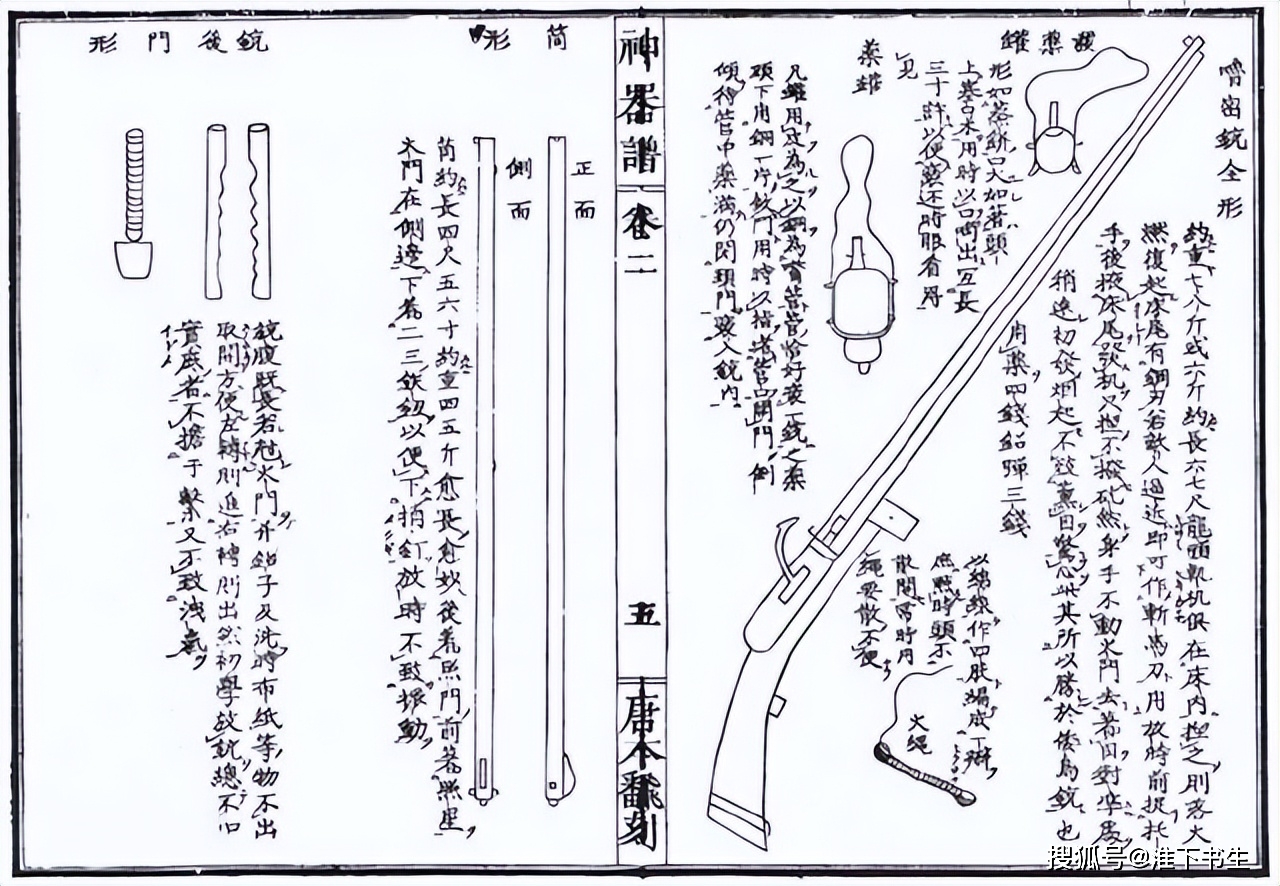 嚕密銃全形
約重七八斤或六斤約長六七尺龍頭軌机俱在床内捏之則落火
燃復起床尾有鋼刃若敵人逼近即可作斬馬刀用放時前捉托
手後掖床尾發机只捏不撥砣然身手不動火門去着目對準處
稍遠初發烟起不致薰目驚心此其所以勝於倭鳥銃也
用藥四錢鉛彈三錢
發藥罐
形如蒸餅口大如筯頭
上塞口木用時以口啣出亙長
三寸許以便裝迄時眼看得
見
藥罐
凡罐用皮為之以銅為管管恰好裝一銃之藥
項下用銅一片鈒門用時以指堵管口開門倒
傾待管中藥滿仍閉頭門裝入銃内
以綿線作四股編成一辮
庶點時頭不
散開常時用
繩要散不便
火繩
神器譜
卷二
五
唐本翻刻
筒形
正面
側面
筒約長四尺五六寸約重四五斤愈長愈妙後着照門前着照星
火門在側邊下着二三鈙紐以便下捎釘放時不致振動
銃後門形
銃腹既長若尅火門并鉛子及洗時布紙等物不出
取開方便左轉則進右轉則出然初學放銃總不如
實底者不擔于繫又不致洩氣
搜狐号@淮下书生